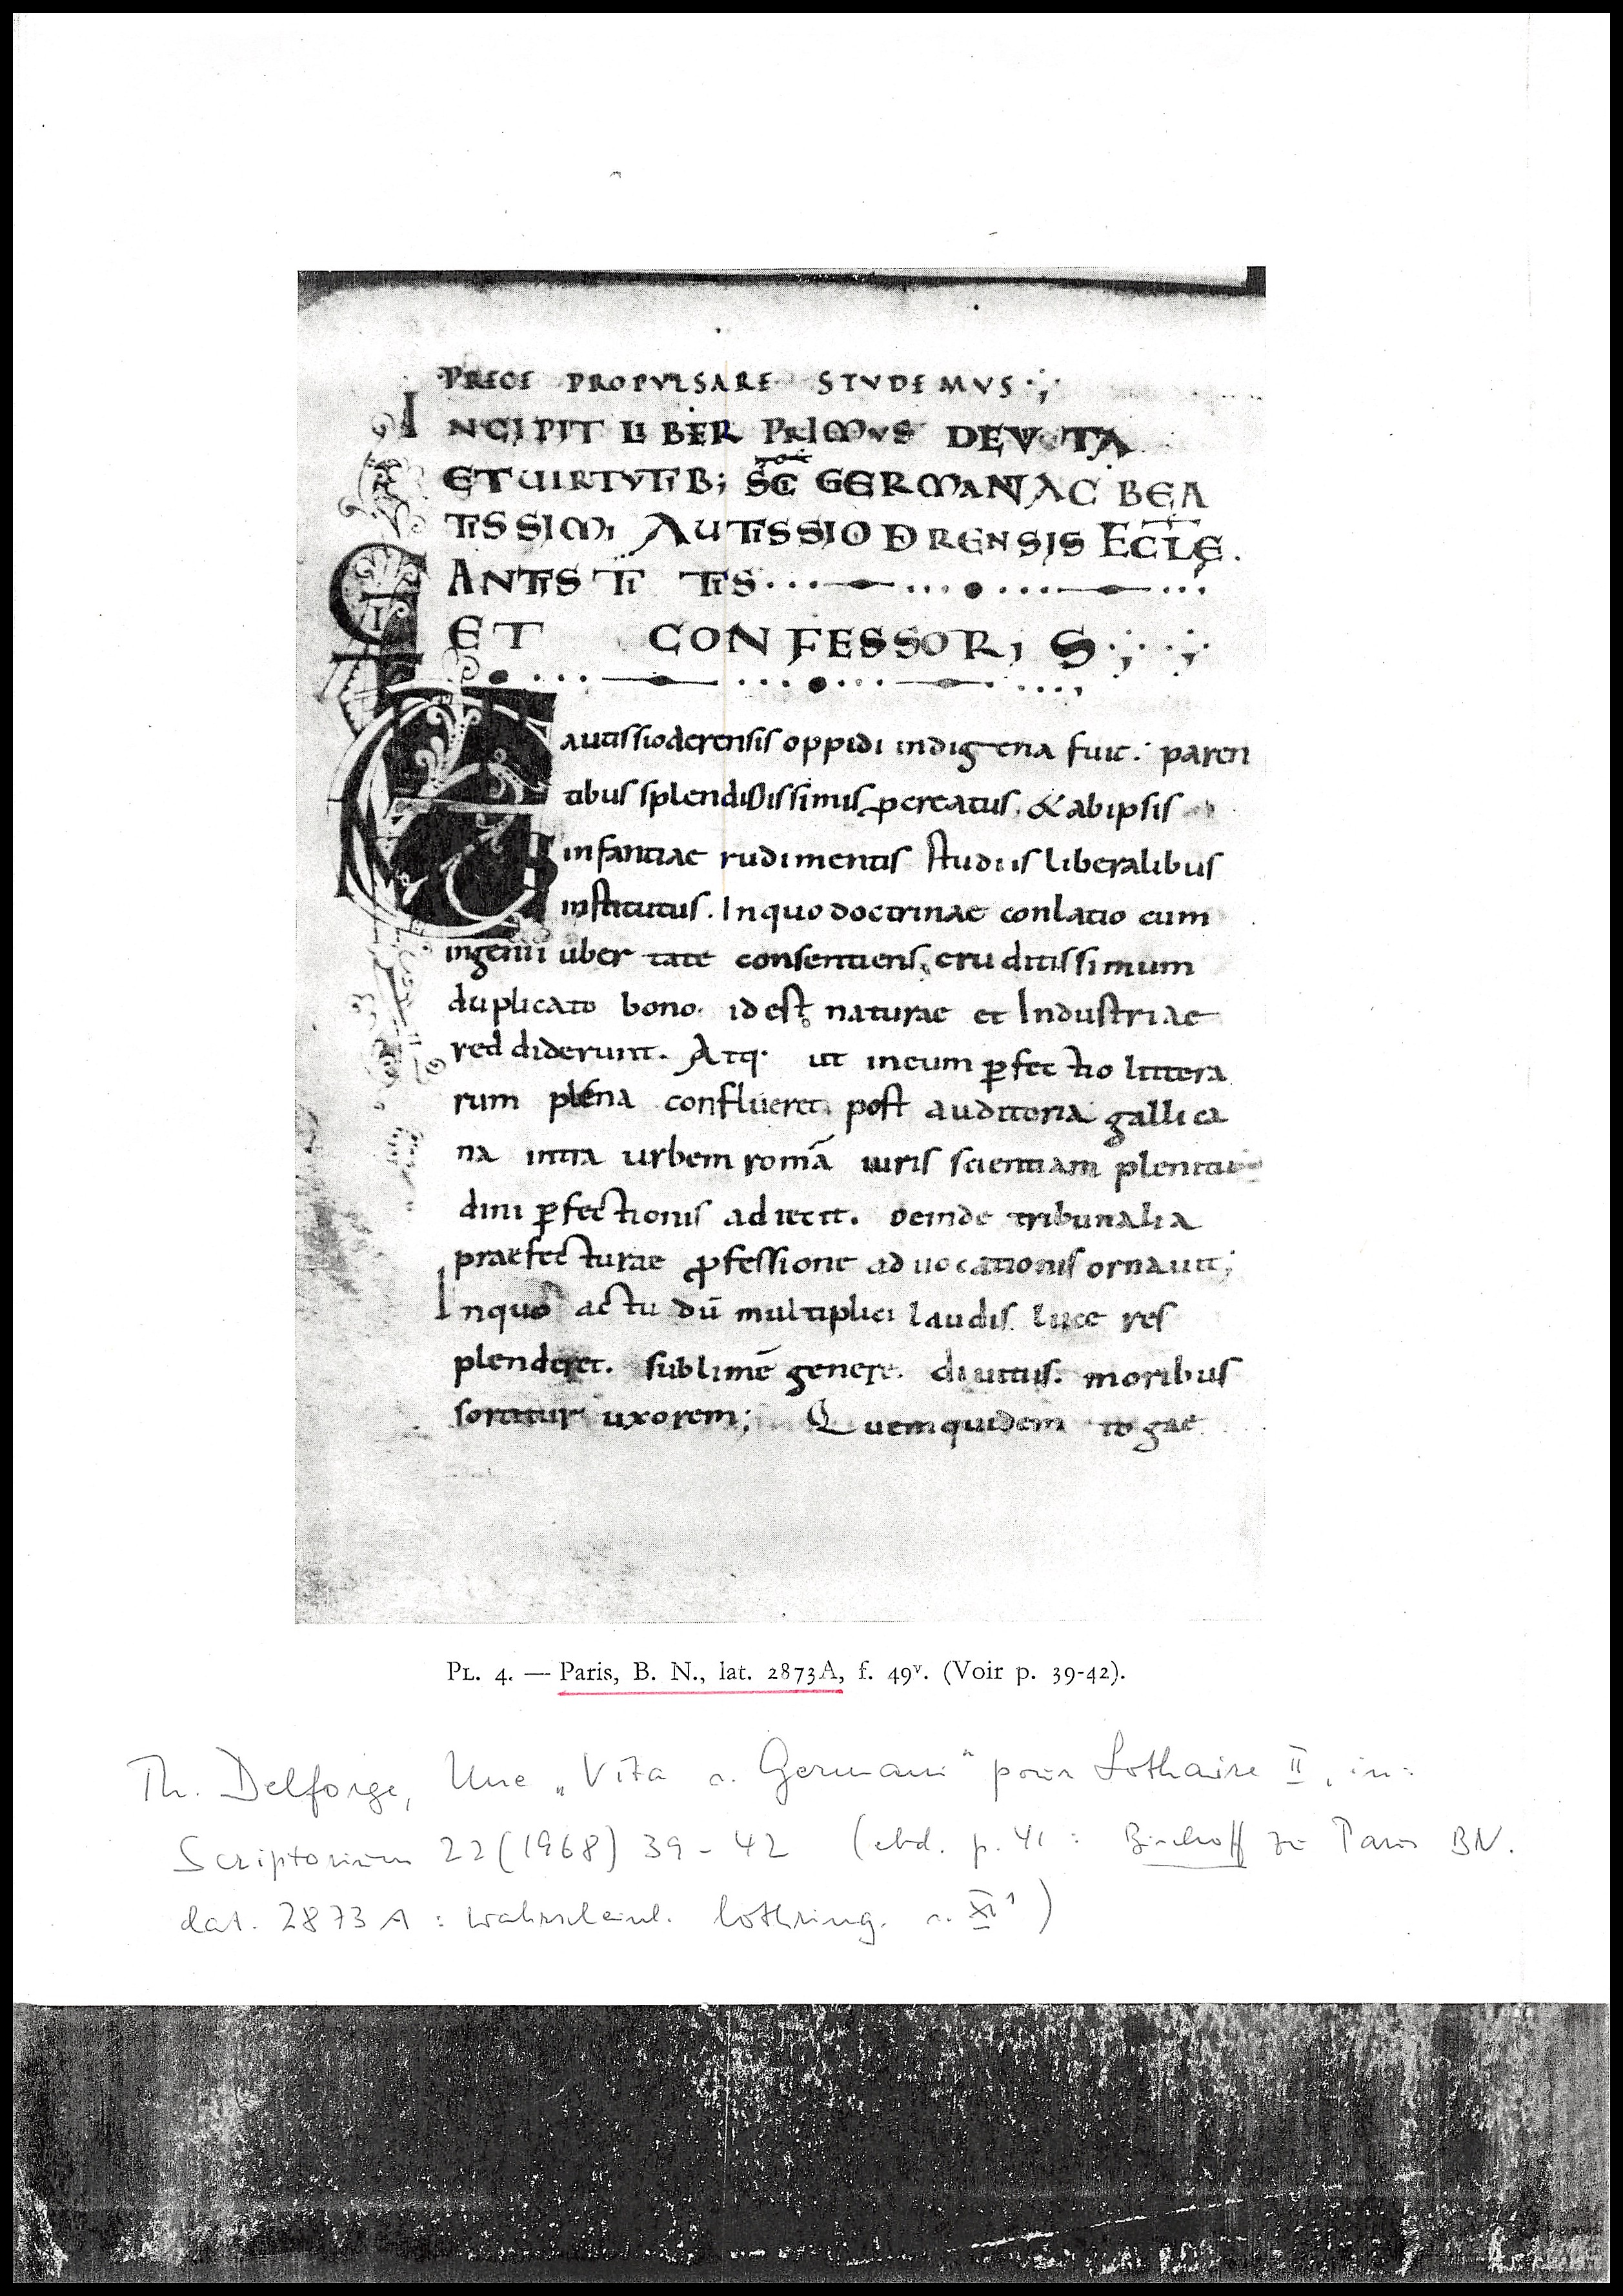 PRECE PROPVLSARE STVDEMVS
INCIPIT LIBER PRIMVS DEVITA
ETUIRTVTIB; SCĪ GERMANI AC BEA
TISSIMI AUTISSIODRENSIS ECLĒ.
ANTISTITIS
ET CONFESSORIS
autissioderensis oppidi indigena fuit. paren
tibus splendidissimis ꝓcreatus. & abipsis
infantiae rudimentis studiis liberalibus
institutus. Inquo doctrinae conlatio cum
ingenii ubertate consentiens, eruditissimum
duplicato bono. id est, naturae et Industriae
reddiderunt. Atq. ut ineum ꝑfectio littera
rum plena conflueret, post auditoria gallica
na intra urbem romā iuris scientiam plenitu
dini ꝑfectionis adiecit. deinde tribunalia
praefecturae ꝓfessione aduocationis ornauit;
Inquo actu dū multiplici laudis luce res
plenderet. sublimē genere. diuitiis. moribus
sortitur uxorem; Quem quidem togae
PL. 4. — Paris, B. N., lat. 2873A, f. 49v. (Voir p. 39-42).
Th. Delforge, Une „Vita s. Germani" pour Lothaire II, in:
Scriptorium 22 (1968) 39-42 (ebd. p. 41: Bischoff zu Paris BN.
lat. 2873 A: wahrscheinl. lothring. s. XI¹)